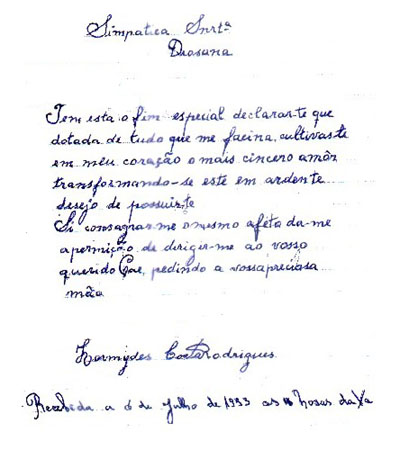 Simpatica Snrtª
Deosana
Tem esta o fim especial declarar-te que
dotada de tudo que me facina, cultivaste
em meu coração o mais cincero amôr
transformando-se este em ardente
desejo de possuirte
Si consagrar-me o mesmo afeto da-me
a permição de dirigir-me ao vosso
querido Pae, pedindo a vossa preciasa
mão
Hermydes Costa Rodrigues
Recebida a 6 de Julho de 1933 as horas da